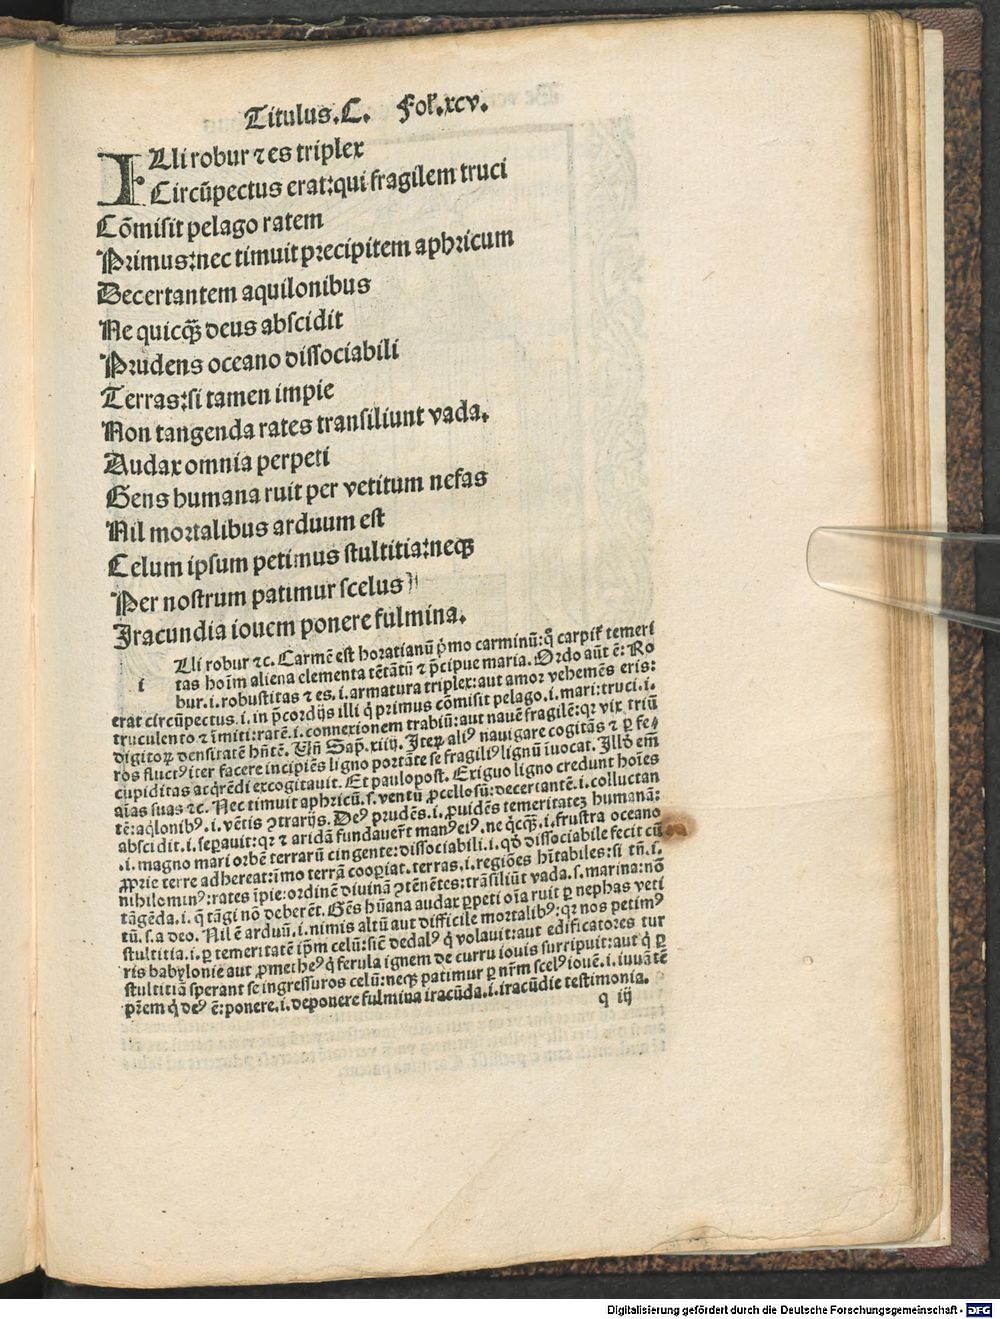 Titulus.C. Fol.xcv.
ILli robur ⁊ es triplex
Circũpectus erat:qui fragilem truci
Cõmisit pelago ratem
Primus:nec timuit precipitem aphricum
Decertantem aquilonibus
Ne quicq̃ꝫ deus abscidit
Prudens oceano dissociabili
Terras:si tamen impie
Non tangenda rates transiliunt vada.
Audax omnia perpeti
Gens humana ruit per vetitum nefas
Nil mortalibus arduum est
Celum ipsum petimus stultitia:neqꝫ
Per nostrum patimur scelus
Iracundia iouem ponere fulmina.
i Lli robur ⁊c. Carmẽ est horatianũ p̃mo carminũ:q̊ carpit᷑ temeri
tas hoĩm aliena elementa tẽtãtũ ⁊ p̃cipue maria. Ordo aũt ẽ: Ro
bur.i.robustitas ⁊ es.i.armatura triplex:aut amor vehemẽs eris:
erat circũpectus.i.in p̃cordijs illi q̇ primus cõmisit pelago.i.mari:truci.i.
truculento ⁊ ĩmiti:ratẽ.i.connexionem trabiũ:aut nauẽ fragilẽ:qꝛ vix triũ
digitoꝝ densitatẽ hñtẽ. Uñ Sap̃.xiiij. Iteꝝ aliꝰ nauigare cogitãs ⁊ ꝑ fe
ros fluctꝰ iter facere incipiẽs ligno portãte se fragiliꝰ lignũ ĩuocat. Illd̕ em̃
cupiditas acq̇rẽdi excogitauit. Et paulopost. Exiguo ligno credunt hoĩes
aĩas suas ⁊c. Nec timuit aphricũ.s.ventũ ꝓcellosũ:decertantẽ.i.colluctan
tẽ:aq̇lonibꝰ.i.vẽtis ꝯtrarijs. Deꝰ prudẽs.i.ꝓuidẽs temeritateꝫ humanã:
abscidit.i.seꝑauit:qꝛ ⁊ aridã fundauer̃t manꝰ eiꝰ.ne q̇cq̃ꝫ.i.frustra oceano
.i.magno mari orbẽ terrarũ cingente:dissociabili.i.qd̕ dissociabile fecit cũ
ꝓprie terre adhereat:ĩmo terrã cooꝑiat.terras.i.regiões hĩtabiles:si tñ.i.
nihilominꝰ:rates ĩpie:ordinẽ diuinã ꝯtẽnẽtes:trãsiliũt vada.s.marina:nõ
tãgẽda.i.q̃ tãgi nõ deberẽt. Gẽs hũana audax ꝑpeti oĩa ruit ꝑ nephas veti
tũ.s.a deo. Nil ẽ arduũ.i.nimis altũ aut difficile mortalibꝰ:qꝛ nos petimꝰ
stultitia.i.ꝑ temeritatẽ ip̃m celũ:sic̃ dedalꝰ q̇ volauit:aut edificatores tur
ris babylonie aut ꝓmetheꝰ q̇ ferula ignem de curru iouis surripuit:aut q̇ ꝑ
stultitiã sperant se ingressuros celũ:neqꝫ patimur ꝑ nr̃m scelꝰ iouẽ.i.iuuãtẽ
pr̃em q̇ deꝰ ẽ:ponere.i.deponere fulmina iracũda.i.iracũdie testimonia.
q iij
Digitalisierung gefördert durch die Deutsche Forschungsgemeinschaft - DFG